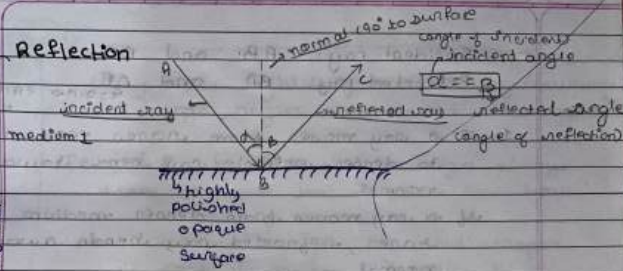 Reflection
normal 90° to surface
(angle of incident)
incident angle
A
C
α = = β
incident ray
reflected ray
reflected angle
(angle of reflection)
medium 1
α
B
B
highly
polished
opaque
surface